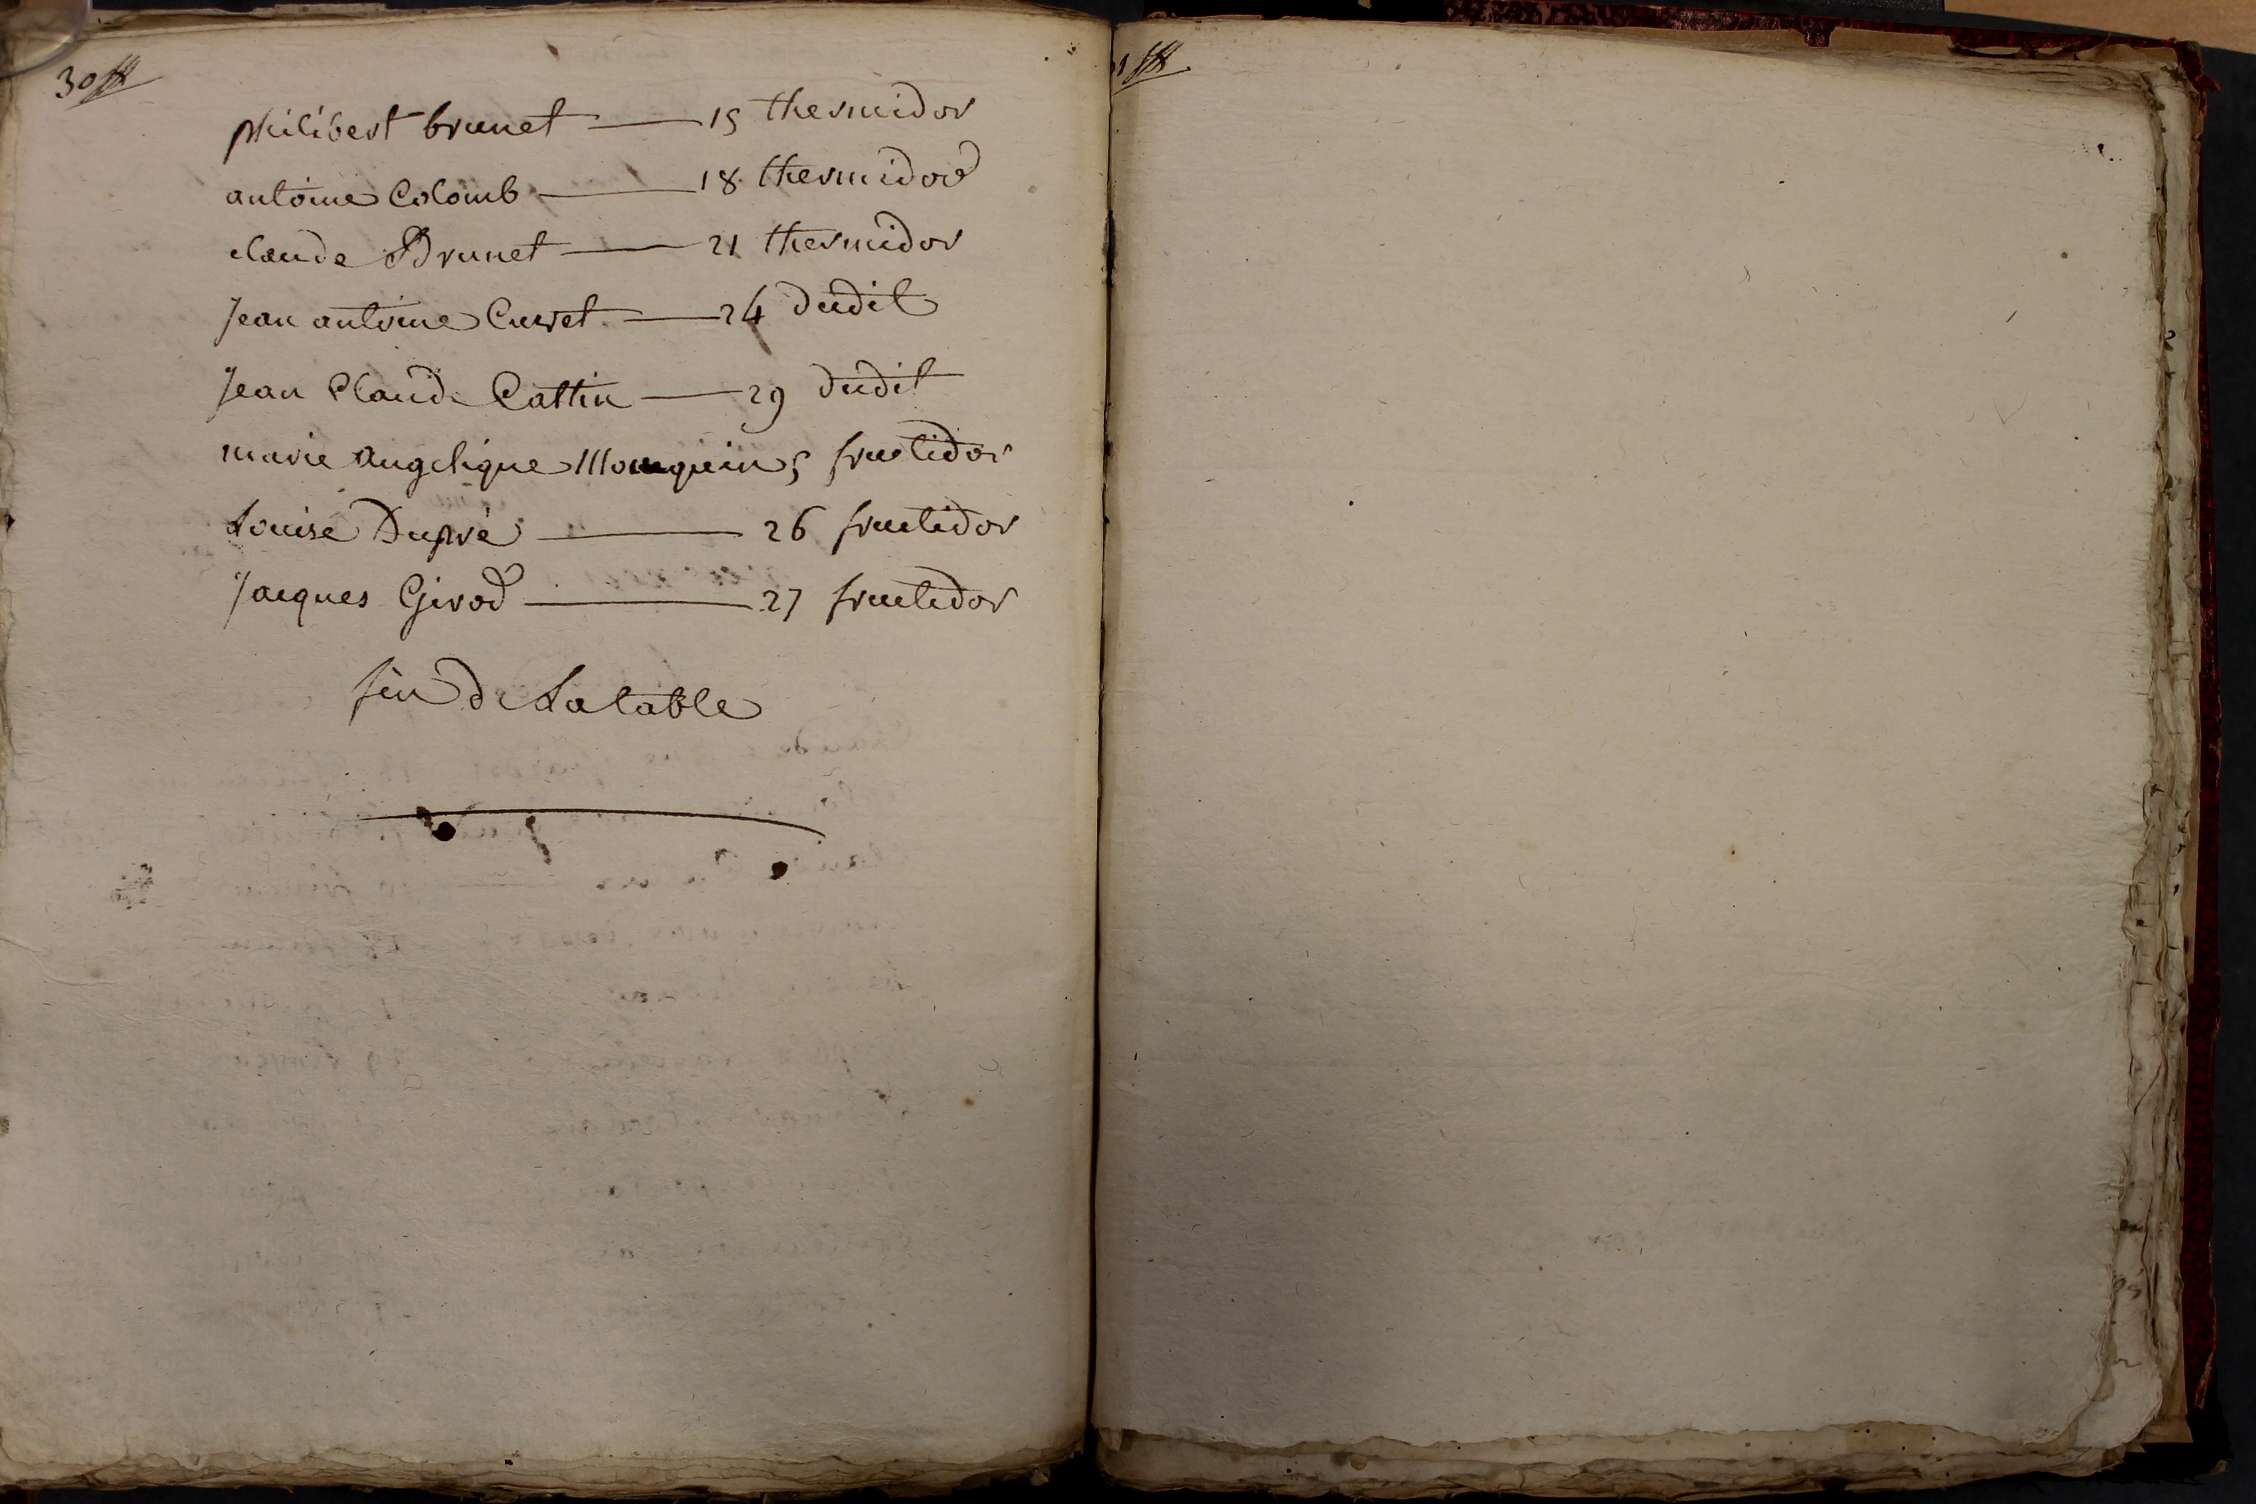 30
philibert brunet — 15 thermidor
antoine Colomb — 18 thermidor
claude Brunet — 21 thermidor
Jean antoine Curvet — 24 dudit
Jean Claude Cattin — 29 dudit
marie angelique Monquin 5 fructidor
Louise Dupré — 26 fructidor
Jacques Girod — 27 fructidor
fin de La table